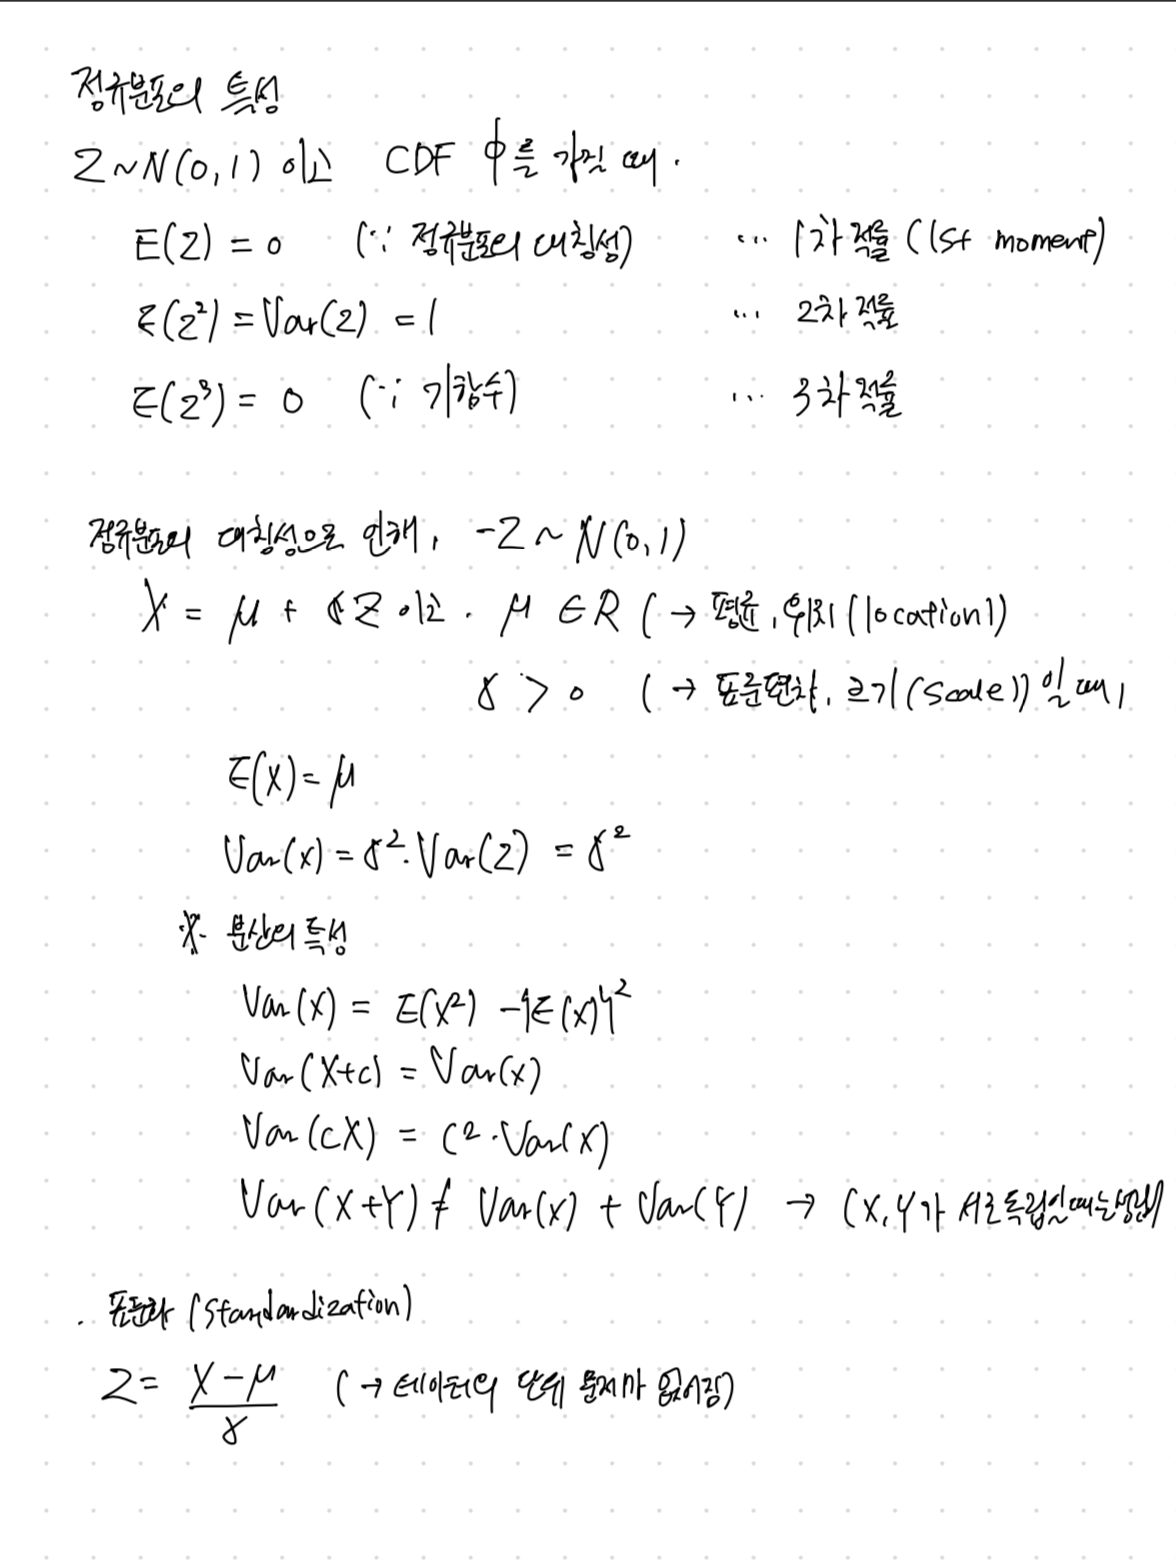 정규분포의 특성
Z~N(0,1) 이고 CDF Φ를 가질 때.
E(Z) = 0 (∵ 정규분포의 대칭성) ... 1차 적률 (1st moment)
E(Z²) = Var(Z) = 1 ... 2차 적률
E(Z³) = 0 (∵ 기함수) ... 3차 적률
정규분포의 대칭성으로 인해, -Z ~ N(0,1)
X = μ + σZ 이고. μ ∈ R (→ 평균, 위치(location))
σ > 0 (→ 표준편차, 크기(Scale)) 일 때,
E(X) = μ
Var(X) = σ²·Var(Z) = σ²
※ 분산의 특성
Var(X) = E(X²) - {E(X)}²
Var(X+c) = Var(X)
Var(cX) = c²·Var(X)
Var(X+Y) ≠ Var(X) + Var(Y) → (X, Y가 서로 독립일 때는 성립)
. 표준화 (Standardization)
Z = (X-μ)/σ (→ 데이터의 단위 문제가 없어짐)